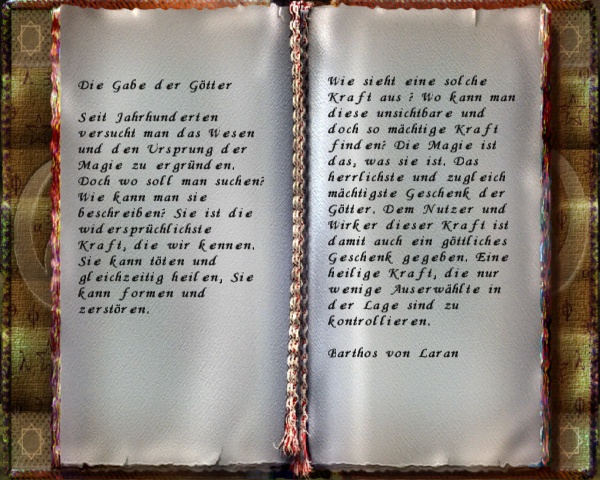 Die Gabe der Götter
Seit Jahrhunderten
versucht man das Wesen
und den Ursprung der
Magie zu ergründen.
Doch wo soll man suchen?
Wie kann man sie
beschreiben? Sie ist die
widersprüchlichste
Kraft, die wir kennen.
Sie kann töten und
gleichzeitig heilen, Sie
kann formen und
zerstören.
Wie sieht eine solche
Kraft aus ? Wo kann man
diese unsichtbare und
doch so mächtige Kraft
finden? Die Magie ist
das, was sie ist. Das
herrlichste und zugleich
mächtigste Geschenk der
Götter. Dem Nutzer und
Wirker dieser Kraft ist
damit auch ein göttliches
Geschenk gegeben. Eine
heilige Kraft, die nur
wenige Auserwählte in
der Lage sind zu
kontrollieren.
Barthos von Laran